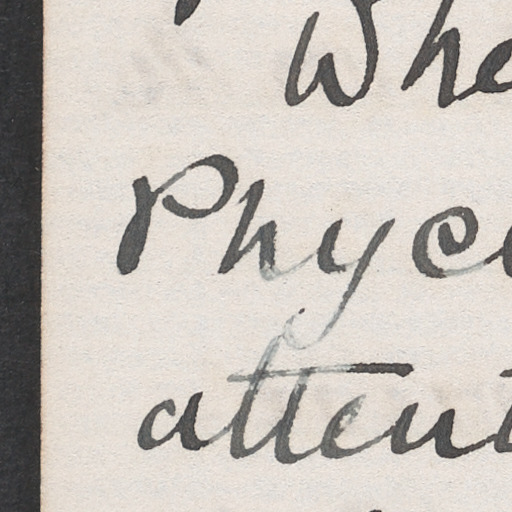 Whe
Phyc
attent